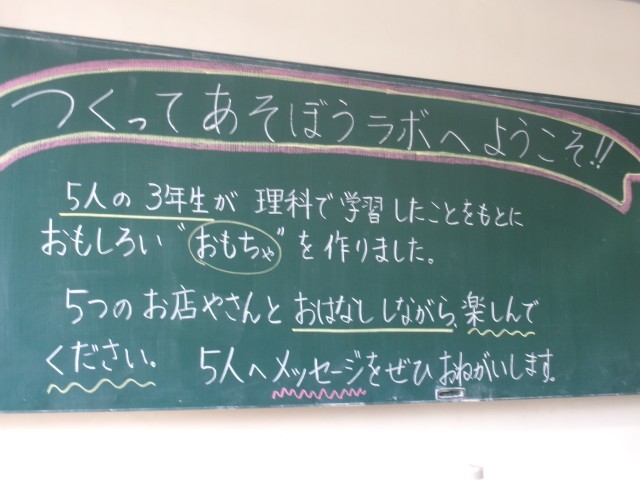 つくってあそぼうラボへようこそ!!
5人の3年生が理科で学習したことをもとに
おもしろい"おもちゃ"を作りました。
5つのお店やさんとおはなししながら、楽しんで
ください。5人へメッセージをぜひおねがいします。